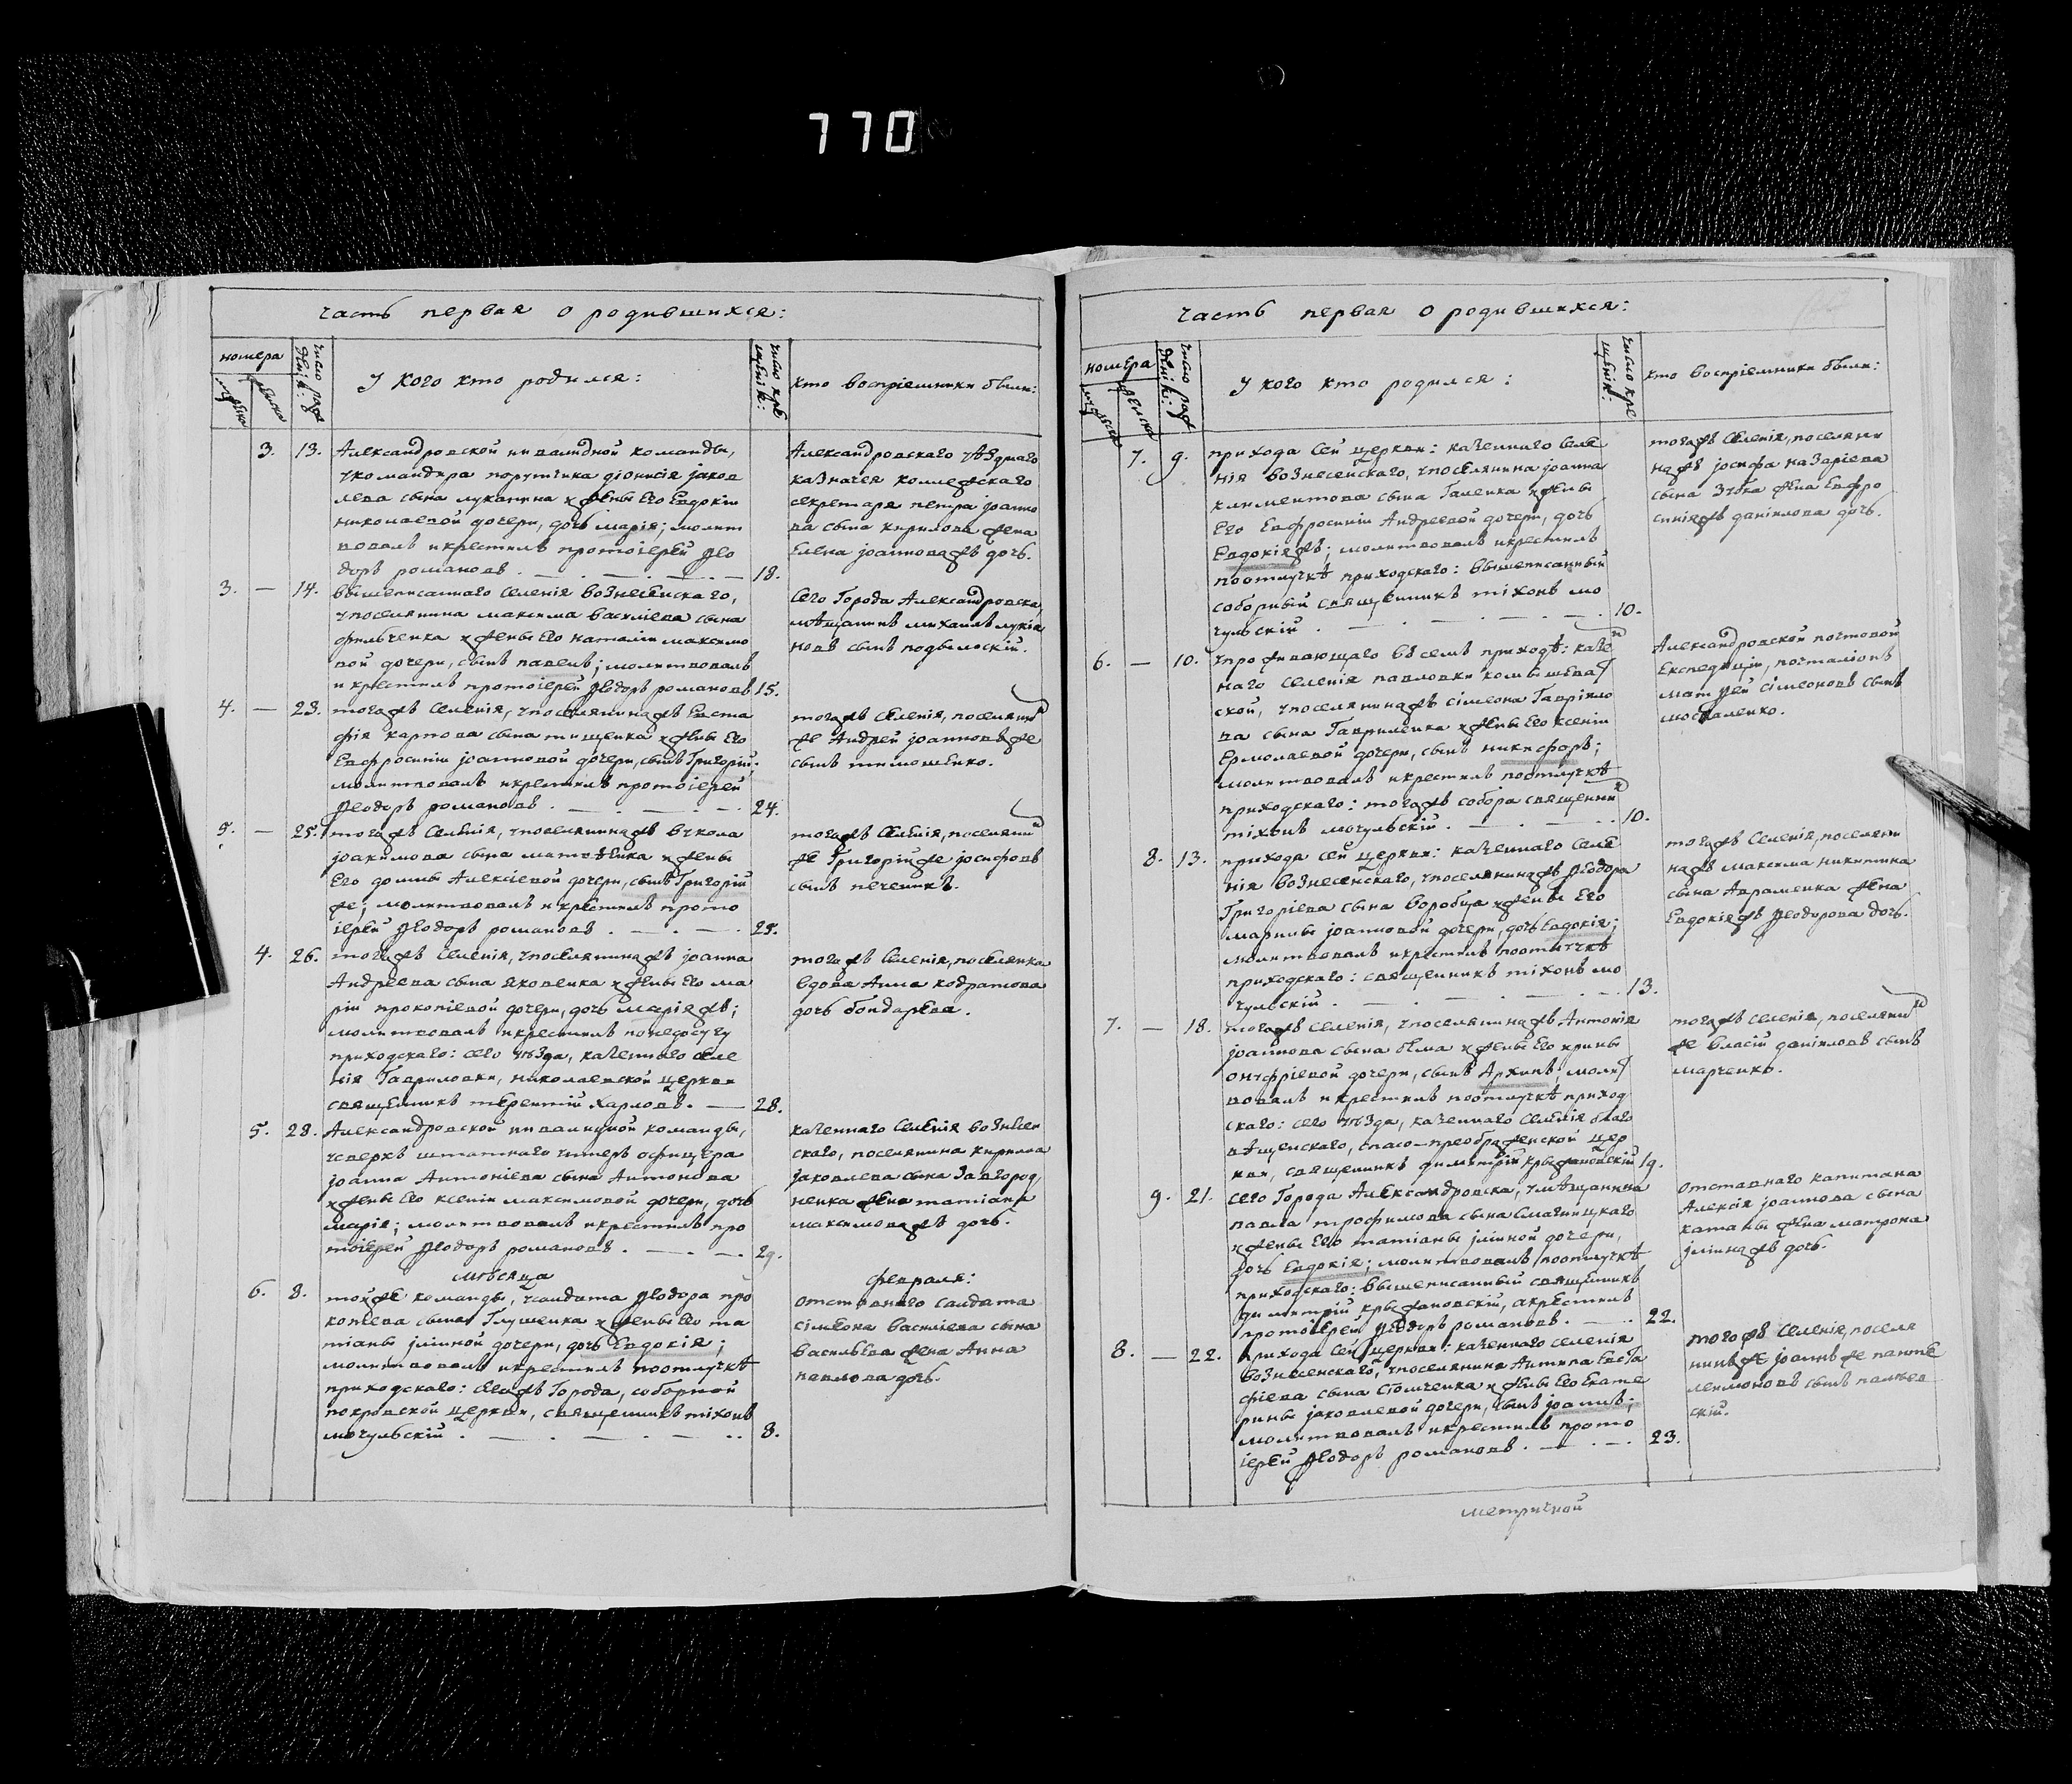 770
часть первая о родившихся:
номера
мужеска
женска
число рож
деній:
У кого кто родился:
число кре
щеній:
кто восприемники были:
3. 13. Александровской инвалидной команды,
у командира порутчика діонисія іаков
лева сына луканина и жены Его Евдокіи
николаевой дочери, дочь марія; молит
вовалъ и крестилъ протоіерей Ѳео
доръ романовъ . — . — . — . — 18.
Александровскаго уѣзднаго
казначея коллежскаго
секретаря петра іоанно
ва сына кирилова жена
Елена іоанноважъ дочь.
3. — 14. вышеписаннаго селенія вознесенскаго,
у поселянина максима василіева сына
фильченка и жены Его наталіи максимо
вой дочери, сынъ павелъ; молитвовалъ
и крестилъ протоіерей Ѳеодоръ романовъ 15.
сего Города Александровска,
мѣщанинъ михаилъ лукіа
новъ сынъ
4. — 23. тогажъ селенія, у поселянинажъ Евста
фія карпова сына тищенка и жены Его
Евфросиніи іоанновой дочери, сынъ Григорій;
молитвовалъ и крестилъ протоіерей
Ѳеодоръ романовъ . — . — . — . 24.
тогажъ селенія, поселянинъ
же Андрей іоанновъ же
сынъ тимошенко.
5. — 25. тогажъ селенія, у поселянинажъ вукола
іоакимова сына матвѣенка и жены
Его домны Алексіевой дочери, сынъ Григорій
же; молитвовалъ и крестилъ прото
іерей Ѳеодоръ романовъ . — . — . 25.
тогажъ селенія, поселянинъ
же Григорій же іосифовъ
сынъ печеникъ.
4. 26. тогажъ селенія, у поселянинажъ іоанна
Андреева сына яковенка и жены Его ма
ріи прокопіевой дочери, дочь маріяжъ;
молитвовалъ и крестилъ по недосугу
приходскаго: сего уѣзда, казеннаго селе
нія Гавриловки, николаевской церкви
священникъ терентій Харловъ . — 28.
тогажъ селенія, поселянка
вдова Анна кодратова
дочь бондарева.
5. 28. Александровской инвалидной команды,
у сверхъ штатнаго унтеръ офицера
іоанна Антоніева сына Антонова
и жены Его ксеніи максимовой дочери, дочь
марія; молитвовалъ и крестилъ про
тоіерей Ѳеодоръ романовъ . — . — . 29.
казеннаго селенія вознесен
скаго, поселянина кирилла
іаковлева сына Завгород,
ненка жена татіана
максимоважъ дочь.
мѣсяца февраля:
6. 8. тойже команды, у солдата Ѳеодора про
копіева сына Глущенка и жены Его та
тіаны іліиной дочери, дочь Евдокія;
молитвовалъ и крестилъ по отлучкѣ
приходскаго: сегожъ Города, соборной
покровской церкви, священникъ тіхонъ
мочульскій . — . — . — . — . . 8.
отставнаго солдата
сімеона василіева сына
васильева жена Анна
павлова дочь.
часть первая о родившихся:
номера
мужеска
женска
число рож
деній:
У кого кто родился:
число кре
щеній:
кто восприемники были:
7. 9. прихода сей церкви: казеннаго селе
нія вознесенскаго, у поселянина іоанна
климентова сына Галенка и жены
Его Евфросиніи Андреевой дочери, дочь
Евдокіяжъ; молитвовалъ и крестилъ
по отлучкѣ приходскаго: вышеписанный
соборный священникъ тіхонъ мо
чульскій . — . — . — . — . 10.
тогажъ селенія, поселяни
нажъ іосифа назаріева
сына Зуба жена Евфро
синіяжъ даніилова дочь.
6. — 10. у проживающаго въ семъ приходѣ: казен
наго селенія павловки комышева
ской, у поселянинажъ сімеона Гавріило
ва сына Гавриленка и жены Его ксеніи
Ермолаевой дочери, сынъ никифоръ;
молитвовалъ и крестилъ по отлучкѣ
приходскаго: тогажъ собора священникъ
тіхонъ мочульскій . — . — . . 10.
Александровской почтовой
Експедиціи, почталіонъ
матѳей сімеоновъ сынъ
москаленко.
8. 13. прихода сей церкви: казеннаго селе
нія вознесенскаго, у поселянинажъ Ѳеодора
Григоріева сына воробца и жены Его
марины іоанновой дочери, дочь Евдокія;
молитвовалъ и крестилъ по отлучкѣ
приходскаго: священникъ тіхонъ мо
чульскій . — . — . — . — . 13.
тогажъ селенія, поселяни
нажъ максима никитина
сына Авраменка жена
Евдокіяжъ Ѳеодорова дочь.
7. — 18. тогажъ селенія, у поселянинажъ Антонія
іоаннова сына бѣма и жены Его ирины
онуфріевой дочери, сынъ Архипъ; молит
вовалъ и крестилъ по отлучкѣ приход
скаго: сего уѣзда, казеннаго селенія благо
вѣщенскаго, спасо-преображенской цер
кви, священникъ димитрій крыжановскій 19.
тогажъ селенія, поселянинъ
же власій даніиловъ сынъ
марченко.
9. 21. сего Города Александровска, у мѣщанина
павла трофимова сына смагницкаго
и жены Его татіаны іліиной дочери,
дочь Евдокія; молитвовалъ по отлучкѣ
приходскаго: вышеписанный священникъ
димитрій крыжановскій, а крестилъ
протоіерей Ѳеодоръ романовъ . — . 22.
отставнаго капитана
Алексія іоаннова сына
катаны жена матрона
іліинажъ дочь.
8. — 22. прихода сей церкви: казеннаго селенія
вознесенскаго, у поселянина Антипа Евста
фіева сына сіомченка и жены Его Екате
рины іаковлевой дочери, сынъ іоаннъ;
молитвовалъ и крестилъ прото
іерей Ѳеодоръ романовъ . — . — . 23.
тогожъ селенія, поселя
нинъ же іоаннъ же панте
леимоновъ сынъ
метричной